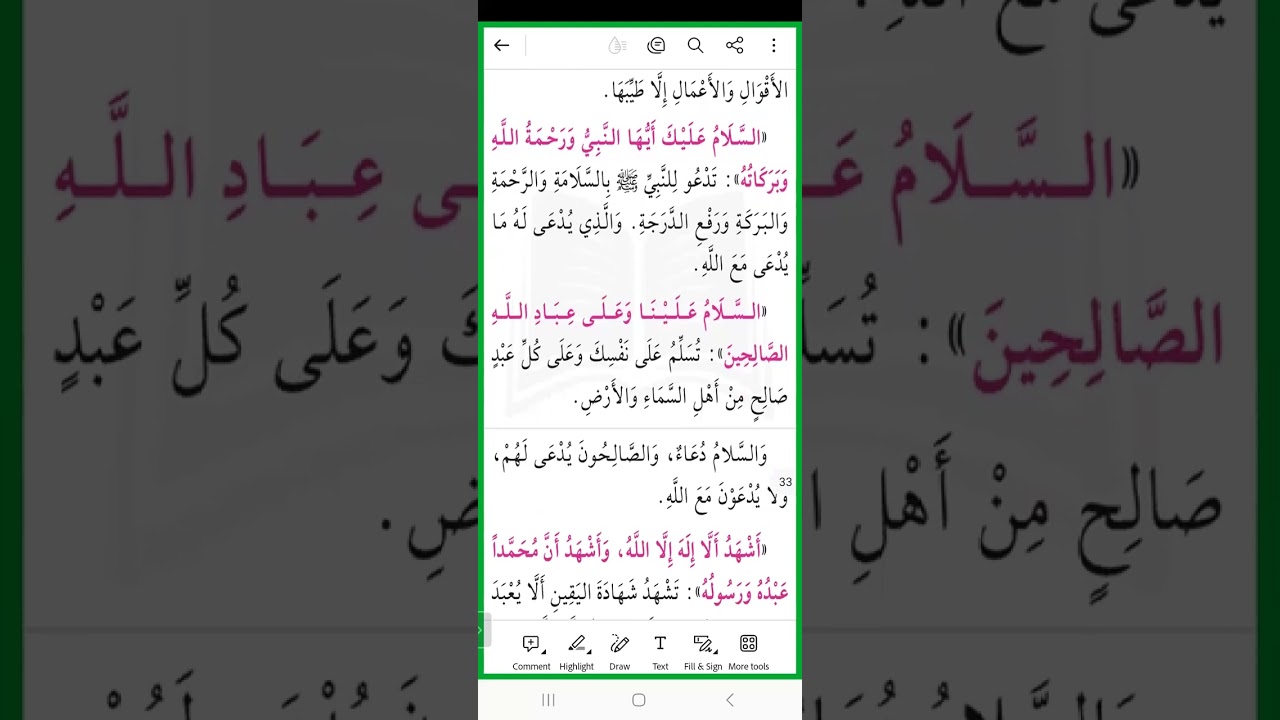 الأَقْوَالِ وَالأَعْمَالِ إِلَّا طَيِّبَهَا.
«السَّلَامُ عَلَيْكَ أَيُّهَا النَّبِيُّ وَرَحْمَةُ اللَّهِ
وَبَرَكَاتُهُ»: تَدْعُو لِلنَّبِيِّ ﷺ بِالسَّلَامَةِ وَالرَّحْمَةِ
وَالبَرَكَةِ وَرَفْعِ الدَّرَجَةِ. وَالَّذِي يُدْعَى لَهُ مَا
يُدْعَى مَعَ اللَّهِ.
«السَّلَامُ عَلَيْنَا وَعَلَى عِبَادِ اللَّهِ
الصَّالِحِينَ»: تُسَلِّمُ عَلَى نَفْسِكَ وَعَلَى كُلِّ عَبْدٍ
صَالِحٍ مِنْ أَهْلِ السَّمَاءِ وَالأَرْضِ.
وَالسَّلامُ دُعَاءٌ، وَالصَّالِحُونَ يُدْعَى لَهُمْ،
33
وَلا يُدْعَوْنَ مَعَ اللَّهِ.
«أَشْهَدُ أَلَّا إِلَهَ إِلَّا اللَّهُ، وَأَشْهَدُ أَنَّ مُحَمَّداً
عَبْدُهُ وَرَسُولُهُ»: تَشْهَدُ شَهَادَةَ اليَقِينِ أَلَّا يُعْبَدَ
Comment Highlight Draw Text Fill & Sign More tools